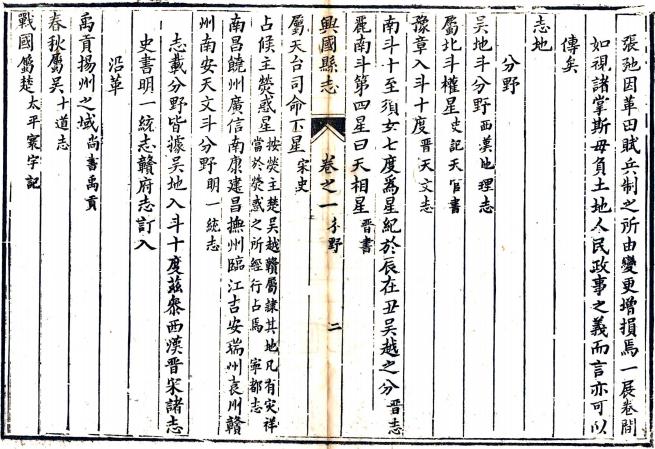 張弛因革田賦兵制之所由變更增損焉一展卷間
如視諸掌斯毋負土地人民政事之義而言亦可以
傳矣
志地
分野
吳地斗分野西漢地理志
屬北斗權星史記天官書
豫章入斗十度晉天文志
南斗十至須女七度為星紀於辰在丑吳越之分晉志
麗南斗第四星曰天相星晉書
興國縣志 卷之一 分野 二
屬天台司命下星宋史
占候主熒惑星按熒主楚吳越贛屬隸其地凡有灾祥
當於熒惑之所經行占焉 寧都志
南昌饒州廣信南康建昌撫州臨江吉安瑞州袁州贛
州南安天文斗分野明一統志
志載分野皆據吳地入斗十度茲叅西漢晉宋諸志
史書明一統志贛府志訂入
沿革
禹貢揚州之域尚書禹貢
春秋屬吳十道志
戰國屬楚太平寰宇記